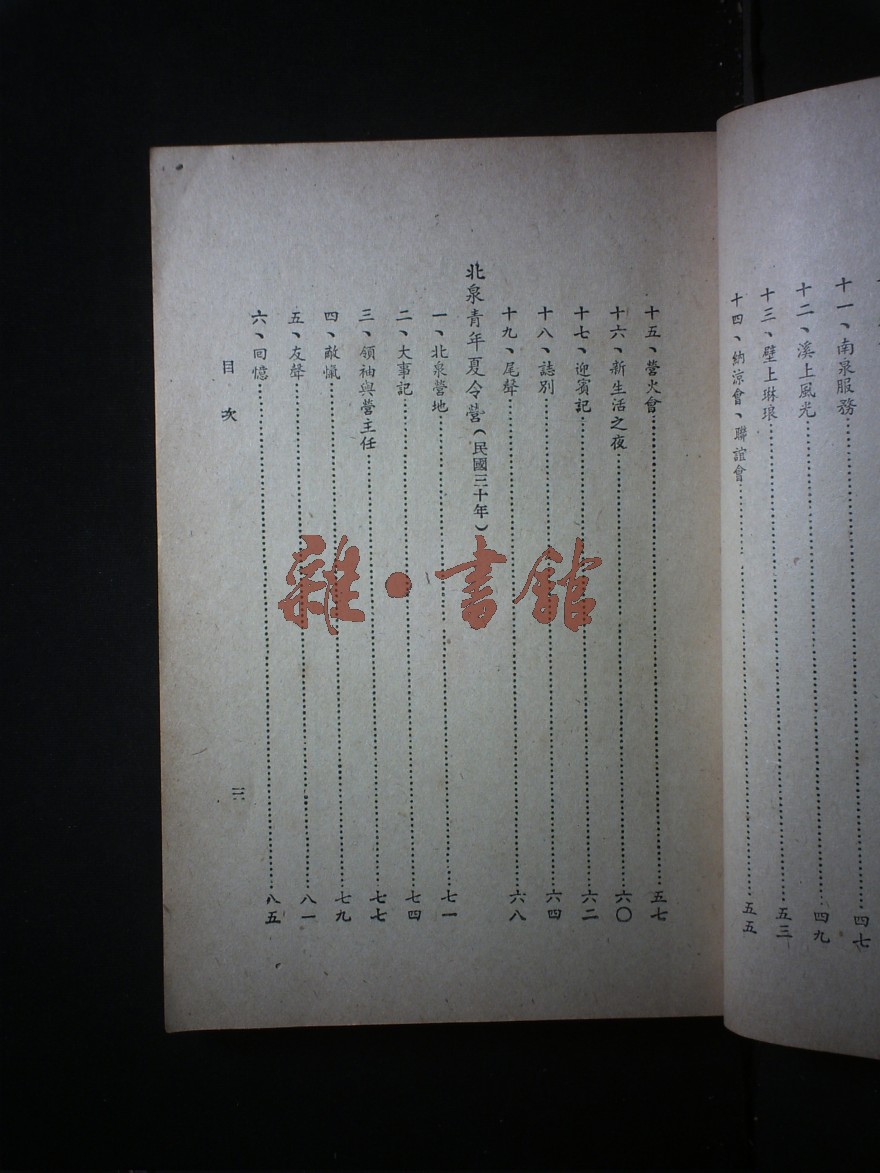 十一、南泉服務……四七
十二、溪上風光……四九
十三、壁上琳琅……五三
十四、納涼會、聯誼會……五五
十五、營火會……五七
十六、新生活之夜……六〇
十七、迎賓記……六二
十八、誌別……六四
十九、尾聲……六八
北泉青年夏令營(民國三十年)
一、北泉營地……七一
二、大事記……七四
三、領袖與營主任……七七
四、敵愾……七九
五、友聲……八一
六、回憶……八五
目次
三
雜·書館